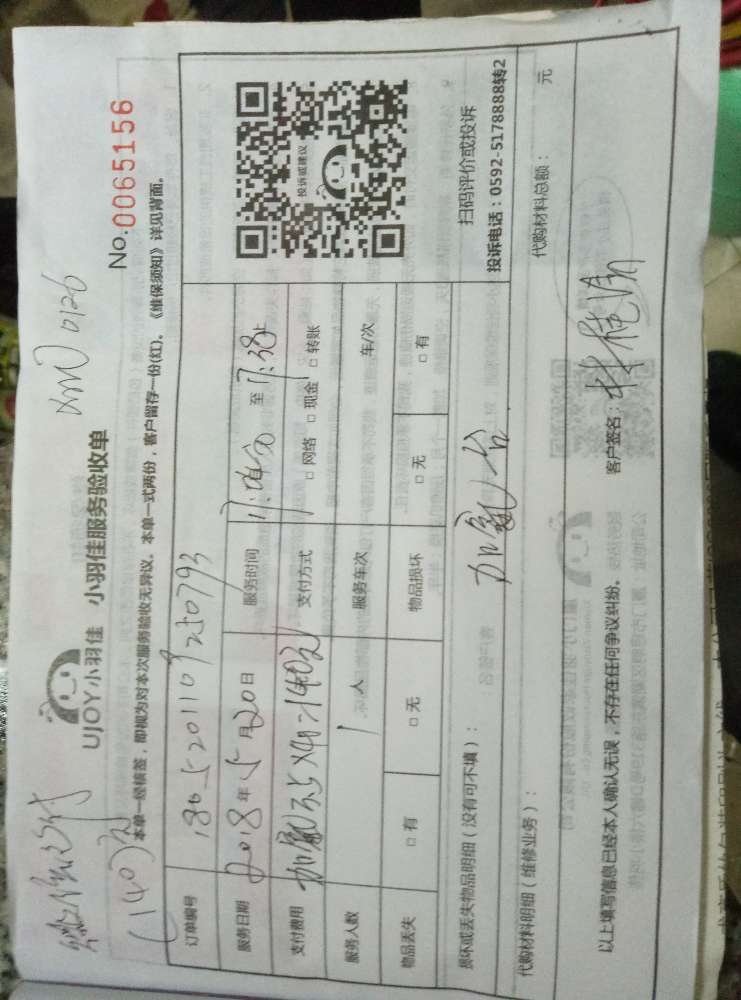 (140元)
UJOY小羽佳 小羽佳服务验收单
No.0065156
本单一经核签，即视为对本次服务验收无异议。本单一式两份，客户留存一份(红)。《维保须知》详见背面。
订单编号 1805201109250793
服务日期 2018年5月20日 服务时间 至 17:38
支付费用 加氟3.5×40=140元 支付方式 □网络 □现金 □转账
服务人数 1 人 服务车次 车/次
物品丢失 □有 □无 物品损坏 □无 □有
投诉或建议
扫码评价或投诉
投诉电话：0592-5178888转2
损坏或丢失物品明细（没有可不填）：
加氟1台
代购材料明细（维修业务）： 代购材料总额： 元
以上填写信息已经本人确认无误，不存在任何争议纠纷。 客户签名：